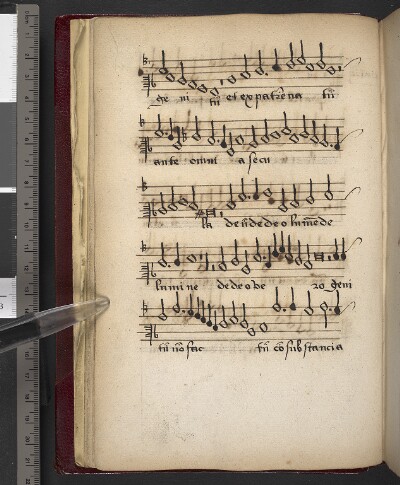 ge ni tū et ex patre na tū
ante omni a secu
la deū de de o lumē de
lumine de de o ve ro geni
tū nō fac tū cō substancia